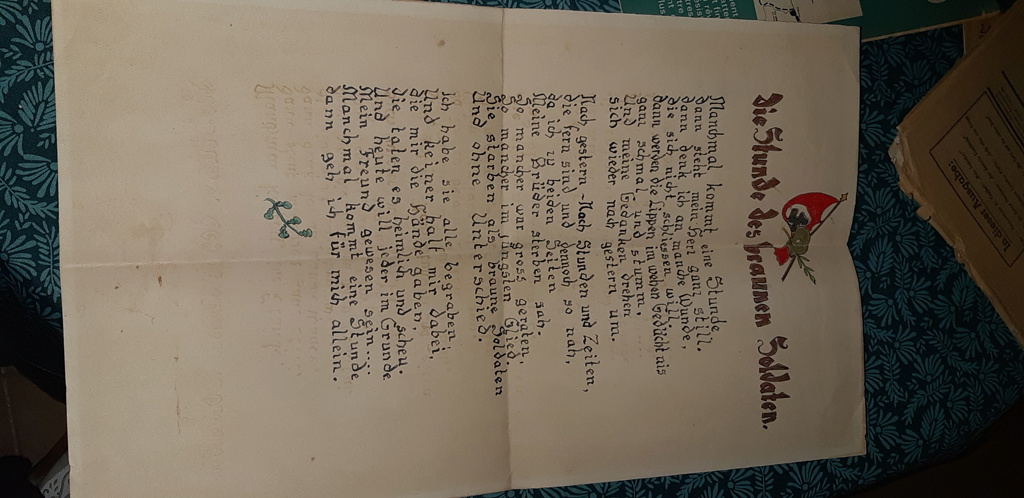 die Stunde des braunen Soldaten.
Manchmal kommt eine Stunde,
dann steht mein Herz ganz still.
dann denk ich an manche Wunde,
die sich nicht schliessen will.
dann werden die Lippen im wehen Gedächtnis
ganz schmal und stumm,
Und meine Gedanken drehen
sich wieder nach gestern um.
Nach gestern - Nach Stunden und Zeiten,
die fern sind und dennoch so nah,
da ich zu beiden Seiten
Meine Brüder sterben sah.
So mancher war gross geraten,
So mancher im jüngsten Glied.
Sie starben als braune Soldaten
Und ohne Unterschied.
Ich habe sie alle begraben,
Und keiner half mir dabei,
die mir die Hände gaben,
die taten es heimlich und scheu.
Und heute will jeder im Grunde
Mein Freund gewesen sein...;
Manchmal kommt eine Stunde
dann geh ich für mich allein.
In dieser Ausgabe: